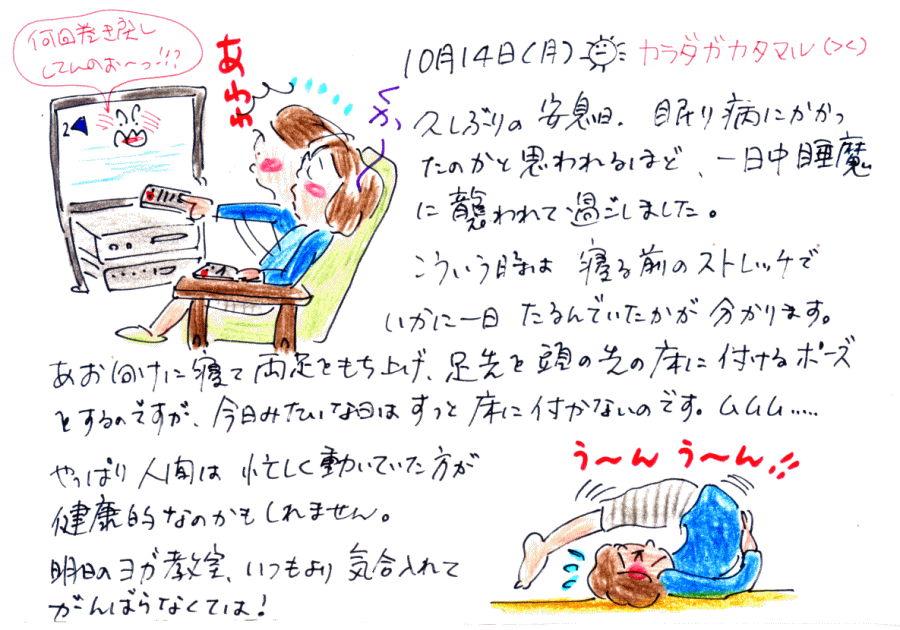 何回巻き戻し
してんのぉ〜っ!!?
あわわ
くかっ
2
10月14日(月) カラダガカタマル(><)
久しぶりの 安息日. 眠り病にかかっ
たのかと思われるほど、一日中睡魔
に襲われて過ごしました。
こういう日は 寝る前のストレッチで
いかに一日 たるんでいたかが 分かります。
あお向けに寝て 両足をもち上げ、足先を頭の先の床に付けるポーズ
をするのですが、今日みたいな日はすっと床に付かないのです。ムムム.....
やっぱり人間は 忙しく動いていた方が
健康的なのかもしれません。
明日のヨガ教室、いつもより気合入れて
がんばらなくては!
う〜ん う〜ん!!